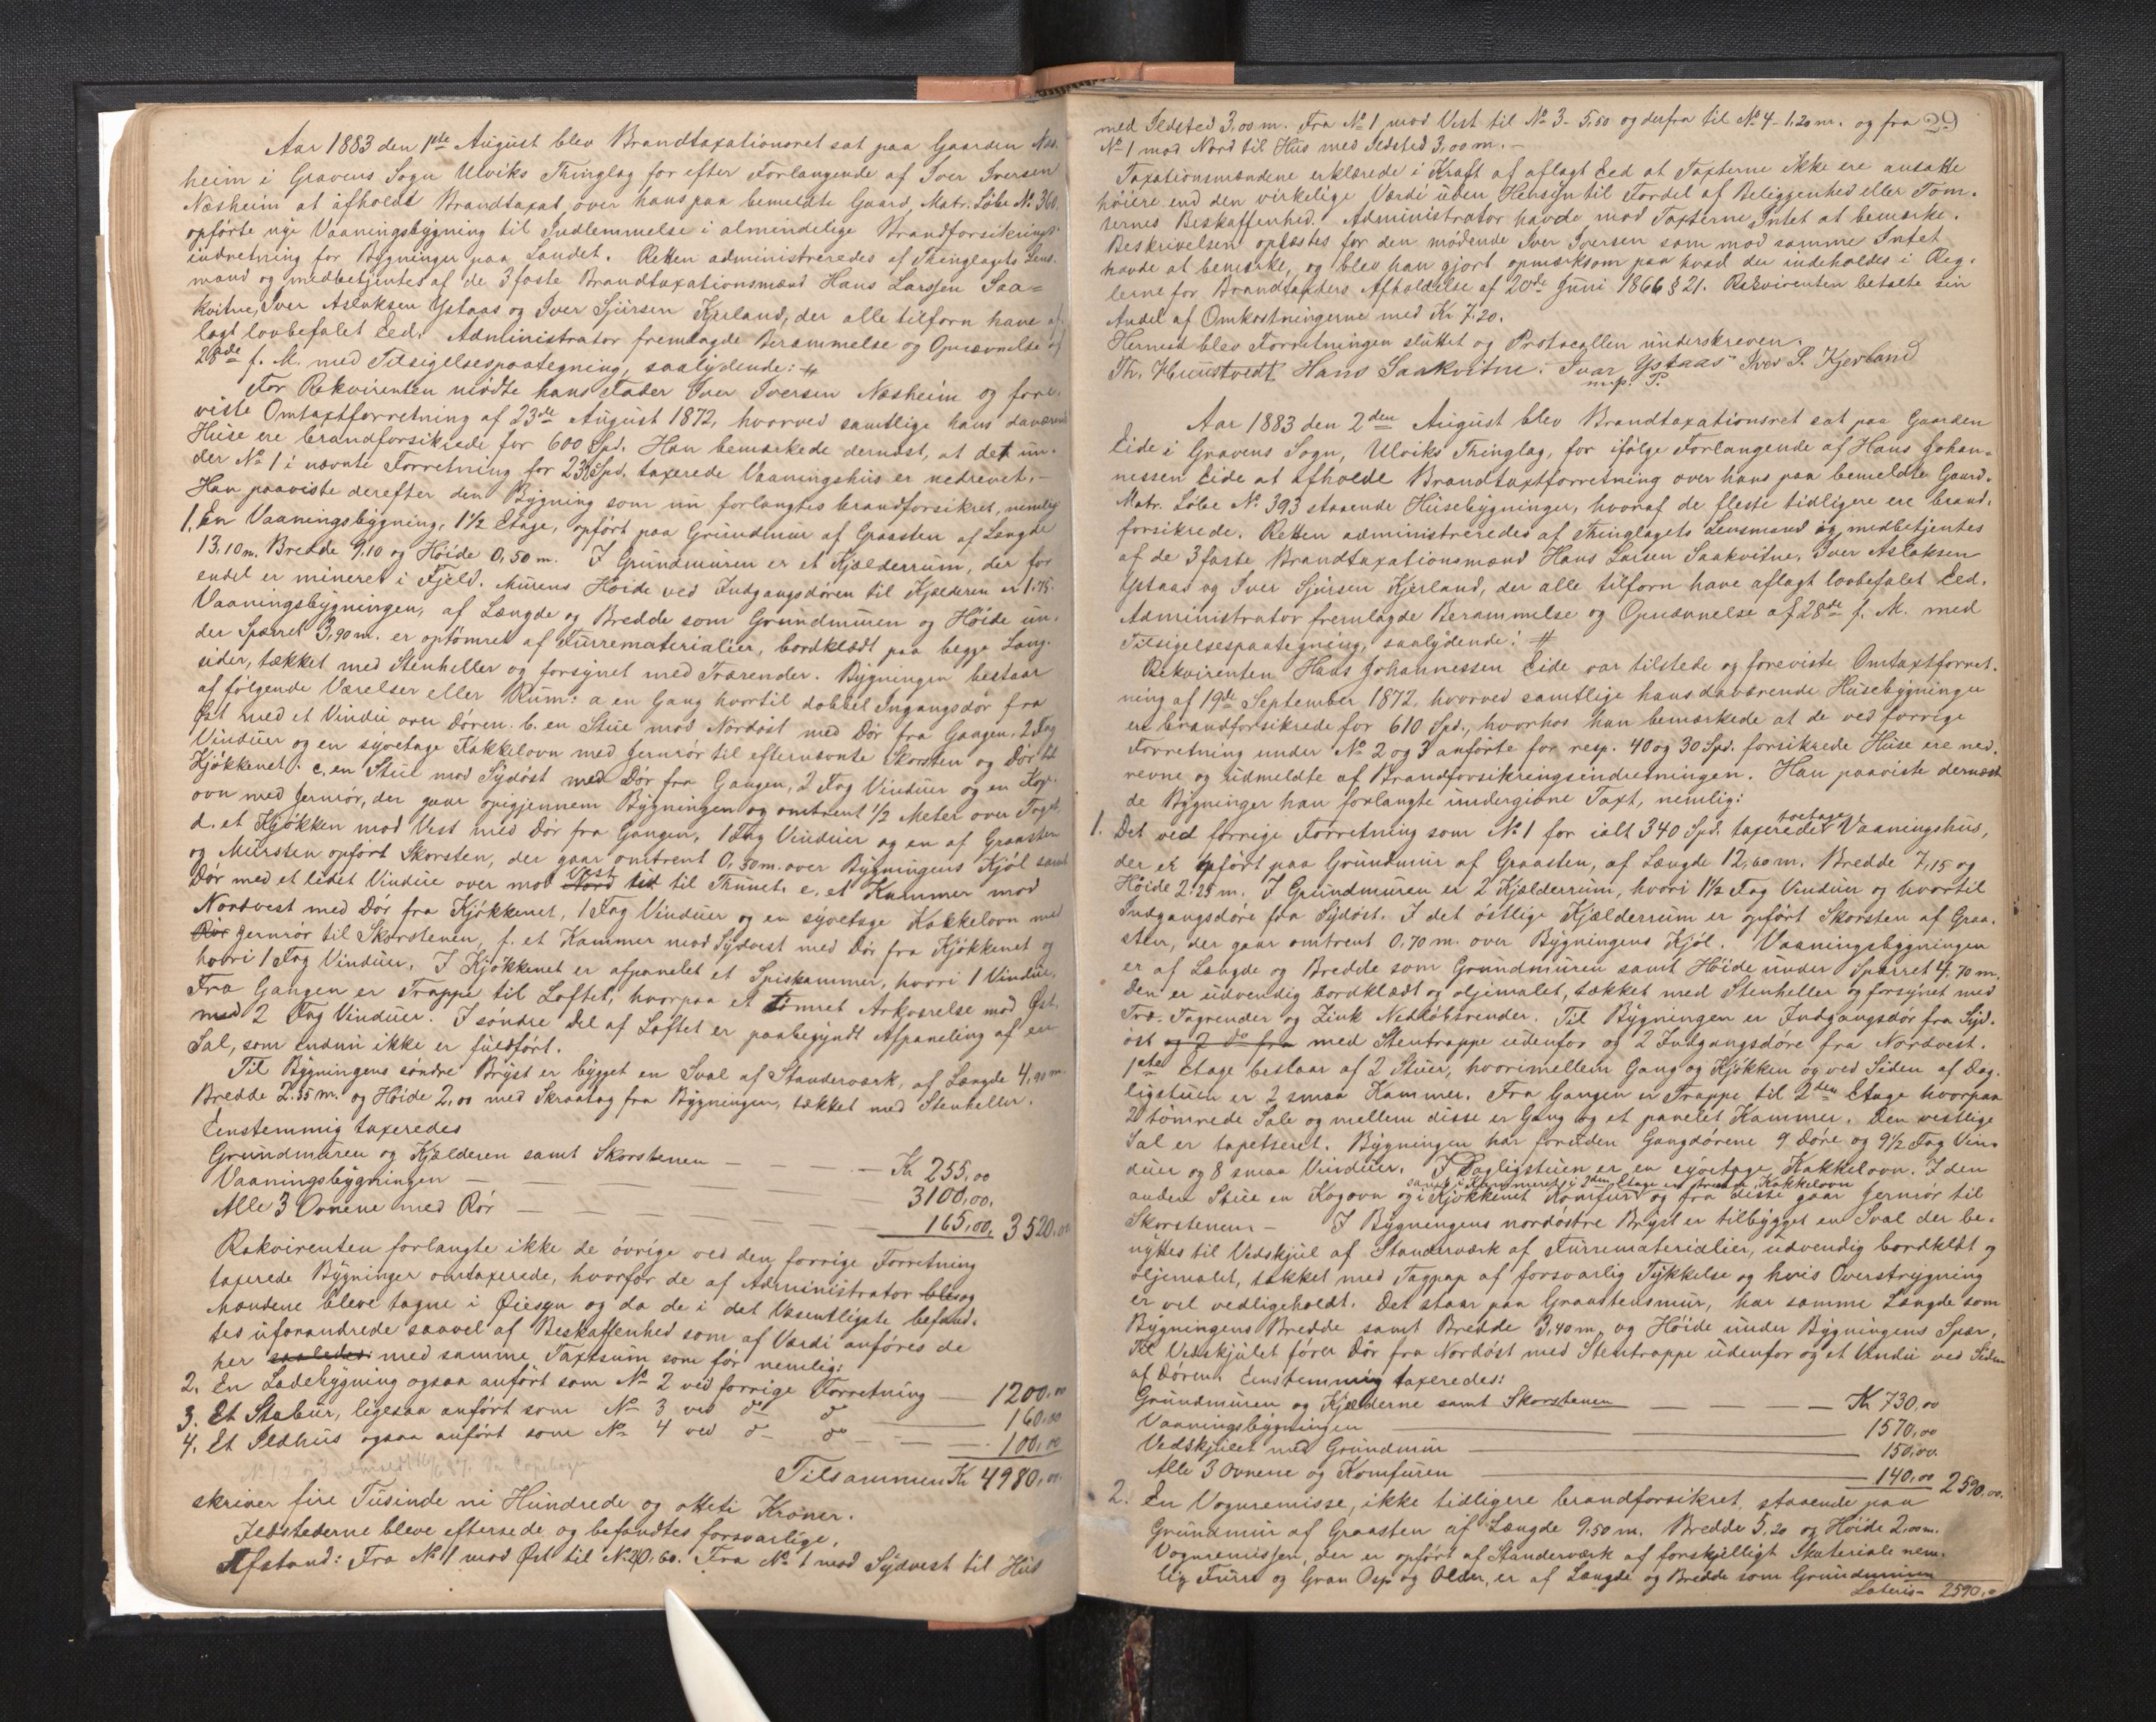 Aar 1883 den 1ste August blev Brandtaxationsret sat paa Gaarden Næs-
heim i Gravens Sogn Ulviks Thinglag for efter Forlangende af Iver Iversen
Næsheim at afholde Brandtaxt over hans paa bemeldte Gaard, Matr. Løbe No 360,
opførte nye Vaaningsbygning til Indlemmelse i almindelige Brandforsikrings-
indretning for Bygninger paa Landet. Retten administreredes af Thinglagets Lens-
mand og medbetjentes af de 3 faste Brandtaxationsmænd Hans Larssen Saa-
kvitne, Iver Aslaksen Ystaas og Iver Sjursen Kjerland, der alle tilforn have af-
lagt lovbefalet Eed. Administrator fremlagde Berammelse og Opnævnelse af
28de f. M. med Tilsigelsespaategning, saalydende: #
For Rekvirenten mødte hans Fader Iver Iversen Næsheim og fore-
viste Omtaxtforretning af 23de August 1872, hvorved samtlige hans daværende
Huse ere brandforsikrede for 600 Spd. Han bemærkede dernæst, at det un-
der No 1 i nævnte Forretning for 230 Spd. taxerede Vaaningshus er nedrevet. –
Han paaviste derefter den Bygning som nu forlangtes brandforsikret, nemlig
1. En Vaaningsbygning, 1 1/2 Etage, opført paa Grundmur af Graasten af Længde
13,10 m. Bredde 9,10 og Høide 0,50 m. I Grundmuren er et Kjælderrum, der for
endel er mineret i Fjeld. Murens Høide ved Indgangsdøren til Kjælderen er 1,75.
Vaaningsbygningen, af Længde og Bredde som Grundmuren og Høide un-
der Spærret 3,90 m. er optømret af Furrematerialier, bordklædt paa begge Lang-
sider, tækket med Stenheller og forsynet med Trærender. Bygningen bestaar
af følgende Værelser eller Rum: a en Gang hvortil dobbel Ingangsdør fra
Øst med et Vindu over Døren. b. en Stue mod Nordøst med Dør fra Gangen, 2 Fag
Vinduer og en syvetage Kakkelovn med Jernrør til efternævnte Skorsten og Dør til
Kjøkkenet. c. en Stue mod Sydøst med Dør fra Gangen, 2 Fag Vinduer og en Kog-
ovn med Jernrør, der gaar opigjennem Bygningen og omtrent 1/2 Meter over Taget.
d. et Kjøkken mod Vest med Dør fra Gangen, 1 Fag Vinduer og en af Graasten
og Mursten opført Skorsten, der gaar omtrent 0,50 m. over Bygningens Kjøl samt
Dør med et lidet Vindue over mod Nord Vest til Thunet. e. et Kammer mod
Nordvest med Dør fra Kjøkkenet, 1 Fag Vinduer og en syvetage Kakkelovn med
Rør Jernrør til Skorstenen, f. et Kammer mod Sydvest med Dør fra Kjøkkenet og
hvori 1 Fag Vinduer. I Kjøkkenet er afpanelet et Spiskammer, hvori 1 Vindue.
Fra Gangen er Trappe til Loftet, hvorpaa et tømret Arkværelse mod Øst
med 2 Fag Vinduer. I søndre Del af Loftet er paabegyndt Afpaneling af en
Sal, som endnu ikke er fuldført.
Til Bygningens søndre Bryst er bygget en Sval af Standerværk, af Længde 4,90 m.
Bredde 2.35 m. og Høide 2,00 med Skraatag fra Bygningen, tækket med Stenheller.
Eenstemmig taxeredes
Grundmuren og Kjælderen samt Skorstenen – – – Kr 255,00
Vaaningsbygningen – – – 3100,00.
Alle 3 Ovnene med Rør – – – 165,00. 3520,00
Rekvirenten forlangte ikke de øvrige ved den forrige Forretning
taxerede Bygninger omtaxerede, hvorfor de af Administrator blev og
Mændene bleve tagne i Øiesyn og da de i det Væsentligste befand-
tes uforandrede saavel af Beskaffenhed som af Værdi anføres de
her saaledes: med samme Taxtsum som før nemlig:
2. En Ladebygning ogsaa anført som No 2 ved forrige Forretning – 1200,00
3. Et Stabur, ligesaa anført som No 3 ved do do – 160,00
4. Et Ildhus ogsaa anført som No 4 ved do do – 100,00
Tilsammen Kr 4980,00
skriver fire Tusinde ni Hundrede og otteti Kroner.
Ildstederne bleve eftersede og befandtes forsvarlige.
Afstand: Fra No 1 mod Øst til No 2 40,60. Fra No 1 mod Sydvest til Hus
29
med Ildsted 3,00 m. Fra No 1 mod Vest til No 3 - 5,50 og derfra til No 4 - 1,20 m. og fra
No 1 mod Nord til Hus med Ildsted 3,00 m. –
Taxationsmændene erklærede i Kraft af aflagt Eed at Taxterne ikke ere ansatte
høiere end den virkelige Værdi uden Hensyn til Fordel af Beliggenhed eller Tom-
ternes Beskaffenhed. Administrator havde mod Taxterne Intet at bemærke.
Beskrivelsen oplæstes for den mødende Iver Iversen som mod samme Intet
havde at bemærke, og blev han gjort opmærksom paa hvad der indeholdes i Reg-
lerne for Brandtaxters Afholdelse af 20de Juni 1866 § 21. Rekvirenten betalte sin
Andel af Omkostningerne med Kr 7,20.
Hermed blev Forretningen sluttet og Protocollen underskreven.
Th. Hunstvedt Hans Saakvitne. Ivar Ystaas Iver S. Kjerland
m. p. P.
Aar 1883 den 2den August blev Brandtaxationsret sat paa Gaarden
Eide i Gravens Sogn, Ulviks Thinglag, for ifølge Forlangende af Hans Johan-
nessen Eide at afholde Brandtaxtforretning over hans paa bemeldte Gaard.
Matr. Løbe No 393 staaende Husebygninger, hvoraf de fleste tidligere ere brand-
forsikrede. Retten administreredes af Thinglagets Lensmand og medbetjentes
af de 3 faste Brandtaxationsmænd Hans Larsen Saakvitne, Iver Aslaksen
Ystaas og Iver Sjursen Kjerland, der alle tilforn have aflagt lovbefalet Eed.
Administrator fremlagde Berammelse og Opnævnelse af 28de f. M. med
Tilsigelsespaategning, saalydende: #
Rekvirenten Hans Johannessen Eide var tilstede og foreviste Omtaxtforret-
ning af 19de September 1872, hvorved samtlige hans daværende Husebygninger
er brandforsikrede for 610 Spd., hvorhos han bemærkede at de ved forrige
Forretning under No 2 og 3 anførte for resp. 40 og 30 Spd. forsikrede Huse ere ned-
revne og udmeldte af Brandforsikringsindretningen. Han paaviste dernæst
de Bygninger han forlangte undergivne Taxt, nemlig:
1. Det ved forrige Forretning som No 1 for ialt 340 Spd. taxerede toetages Vaaningshus,
der er opført paa Grundmur af Graasten, af Længde 12,60 m. Bredde 7,15 og
Høide 2,25 m. I Grundmuren er 2 Kjælderrum, hvori 1 1/2 Fag Vinduer og hvortil
Indgangsdøre fra Sydøst. I det østlige Kjælderrum er opført Skorsten af Graa-
sten, der gaar omtrent 0,70 m. over Bygningens Kjøl. Vaaningsbygningen
er af Længde og Bredde som Grundmuren samt Høide under Spærret 4,70 m.
Den er udvendig bordklædt og oljemalet, tækket med Stenheller og forsynet med
Træ- Tagrender og Zink Nedløbsrender. Til Bygningen er Indgangsdør fra Syd-
øst og 2 do fra med Stentrappe udenfor og 2 Indgangsdøre fra Nordvest.
1ste Etage bestaar af 2 Stuer, hvorimellem Gang og Kjøkken og ved Siden af Dag-
ligstuen er 2 smaa Kammer. Fra Gangen er Trappe til 2den Etage hvorpaa
2 tømrede Sale og mellem disse er Gang og et panelet Kammer. Den vestlige
Sal er tapetseret. Bygningen har foruden Gangdørene 9 Døre og 9 1/2 Fag Vin-
duer og 8 smaa Vinduer. I Dagligstuen er en syvetage Kakkelovn. I den
samt i Kammeret i 2den Etage en Kakkelovn
anden Stue en Kogovn og i Kjøkkenet Komfur og fra disse gaar Jernrør til
Skorstenen – I Bygningens nordøstre Bryst er tilbygget en Sval der be-
nyttes til Vedskjul af Standerværk af Furrematerialier, udvendig bordklædt og
oljemalet, tækket med Tagpap af forsvarlig Tykkelse og hvis Overstrygning
er vel vedligeholdt. Det staar paa Graastensmur, har samme Længde som
Bygningens Bredde samt Bredde 3,40 m. og Høide under Bygningens Spær.
Til Vedskjulet fører Dør fra Nordøst med Stentrappe udenfor og et Vindu ved Siden
af Døren. Eenstemmig taxeredes:
Grundmuren og Kjælderne samt Skorstenen – – – Kr 730,00
Vaaningsbygningen – 1570,00
Vedskjulet med Grundmur – 150,00.
Alle 3 Ovnene og Komfuren – 140,00 2590,00.
2. En Vognremisse, ikke tidligere brandforsikret, staaende paa
Grundmur af Graasten af Længde 9,50 m. Bredde 5,20 og Høide 2,00 m.
Vognremissen, der er opført af Standerværk af forskjelligt Materiale nem-
lig Furre og Gran Osp og Older, er af Længde og Bredde som Grundmuren
Lateris – 2590,00